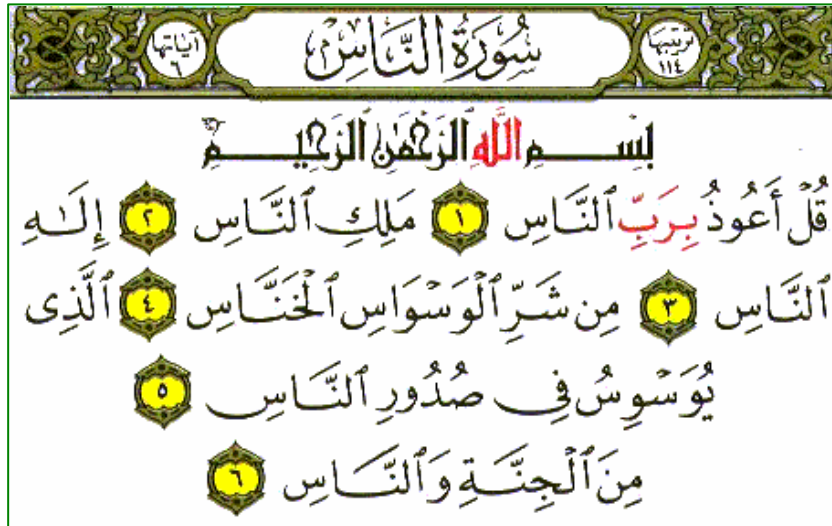 ترتيبها ١١٤ سُورَةُ النَّاسِ آياتها ٦
بِسْمِ اللَّهِ الرَّحْمَٰنِ الرَّحِيمِ
قُلْ أَعُوذُ بِرَبِّ ٱلنَّاسِ ١ مَلِكِ ٱلنَّاسِ ٢ إِلَٰهِ
ٱلنَّاسِ ٣ مِن شَرِّ ٱلْوَسْوَاسِ ٱلْخَنَّاسِ ٤ ٱلَّذِى
يُوَسْوِسُ فِى صُدُورِ ٱلنَّاسِ ٥
مِنَ ٱلْجِنَّةِ وَٱلنَّاسِ ٦